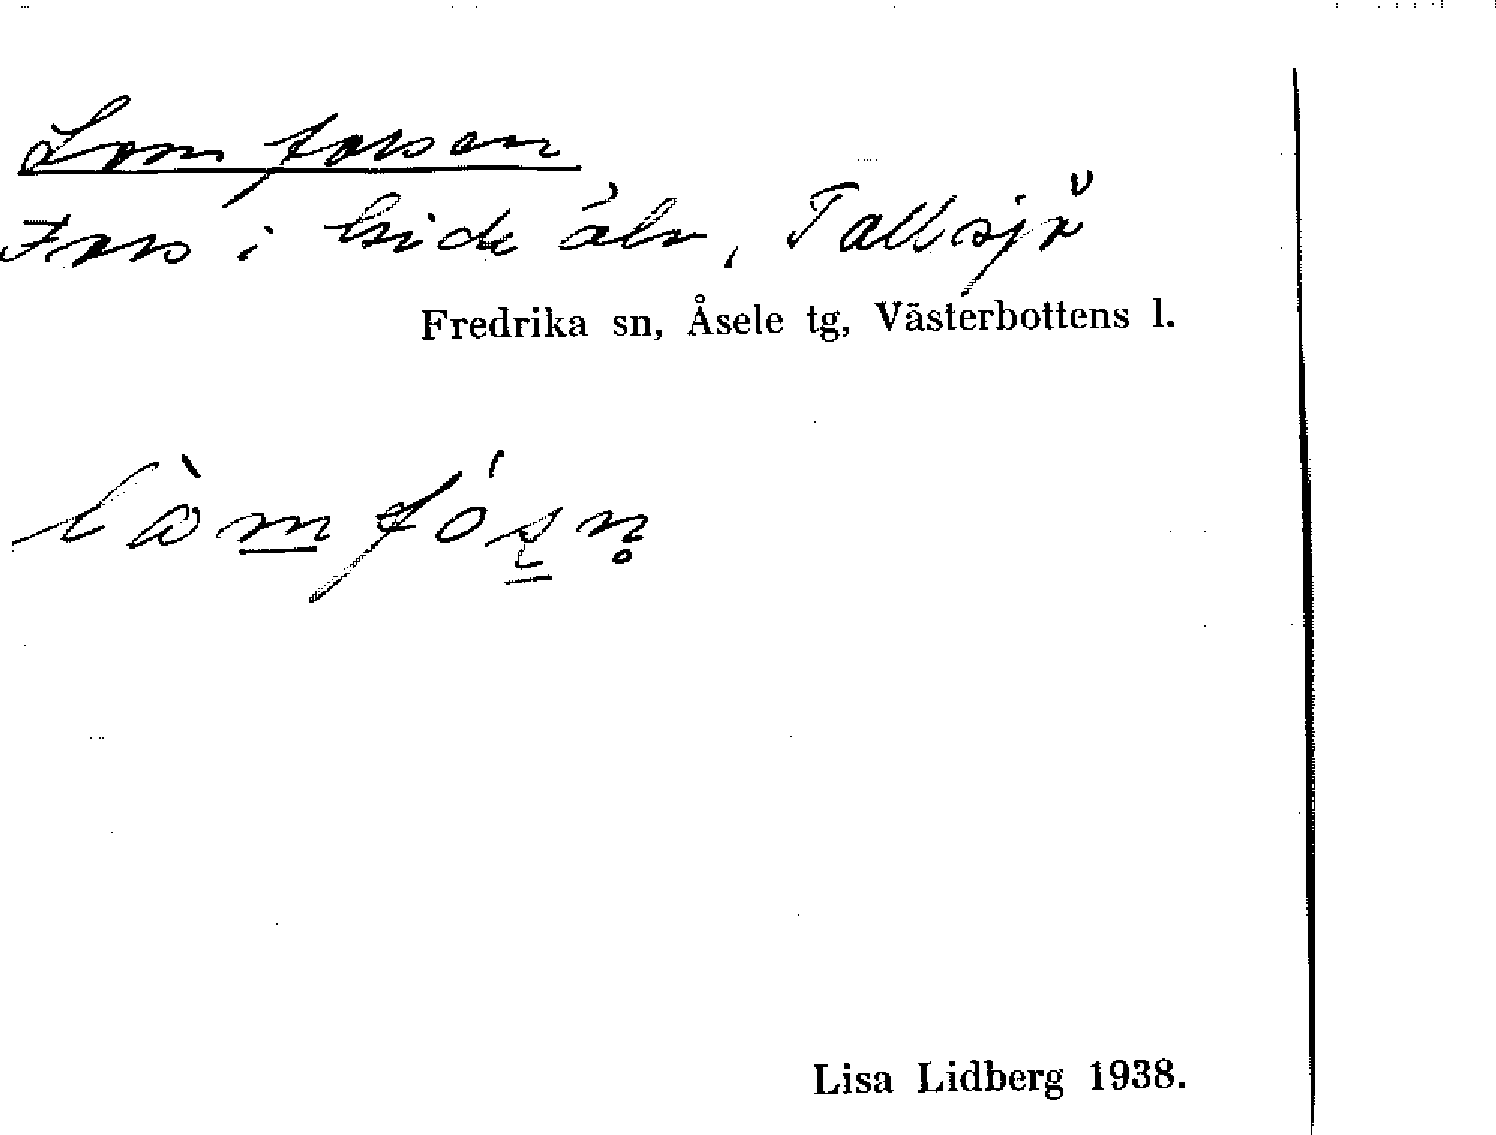 Lomforsen
Fors i Gide älv, Tallsjö
Fredrika sn, Åsele tg, Västerbottens l.
Lisa Lidberg 1938.